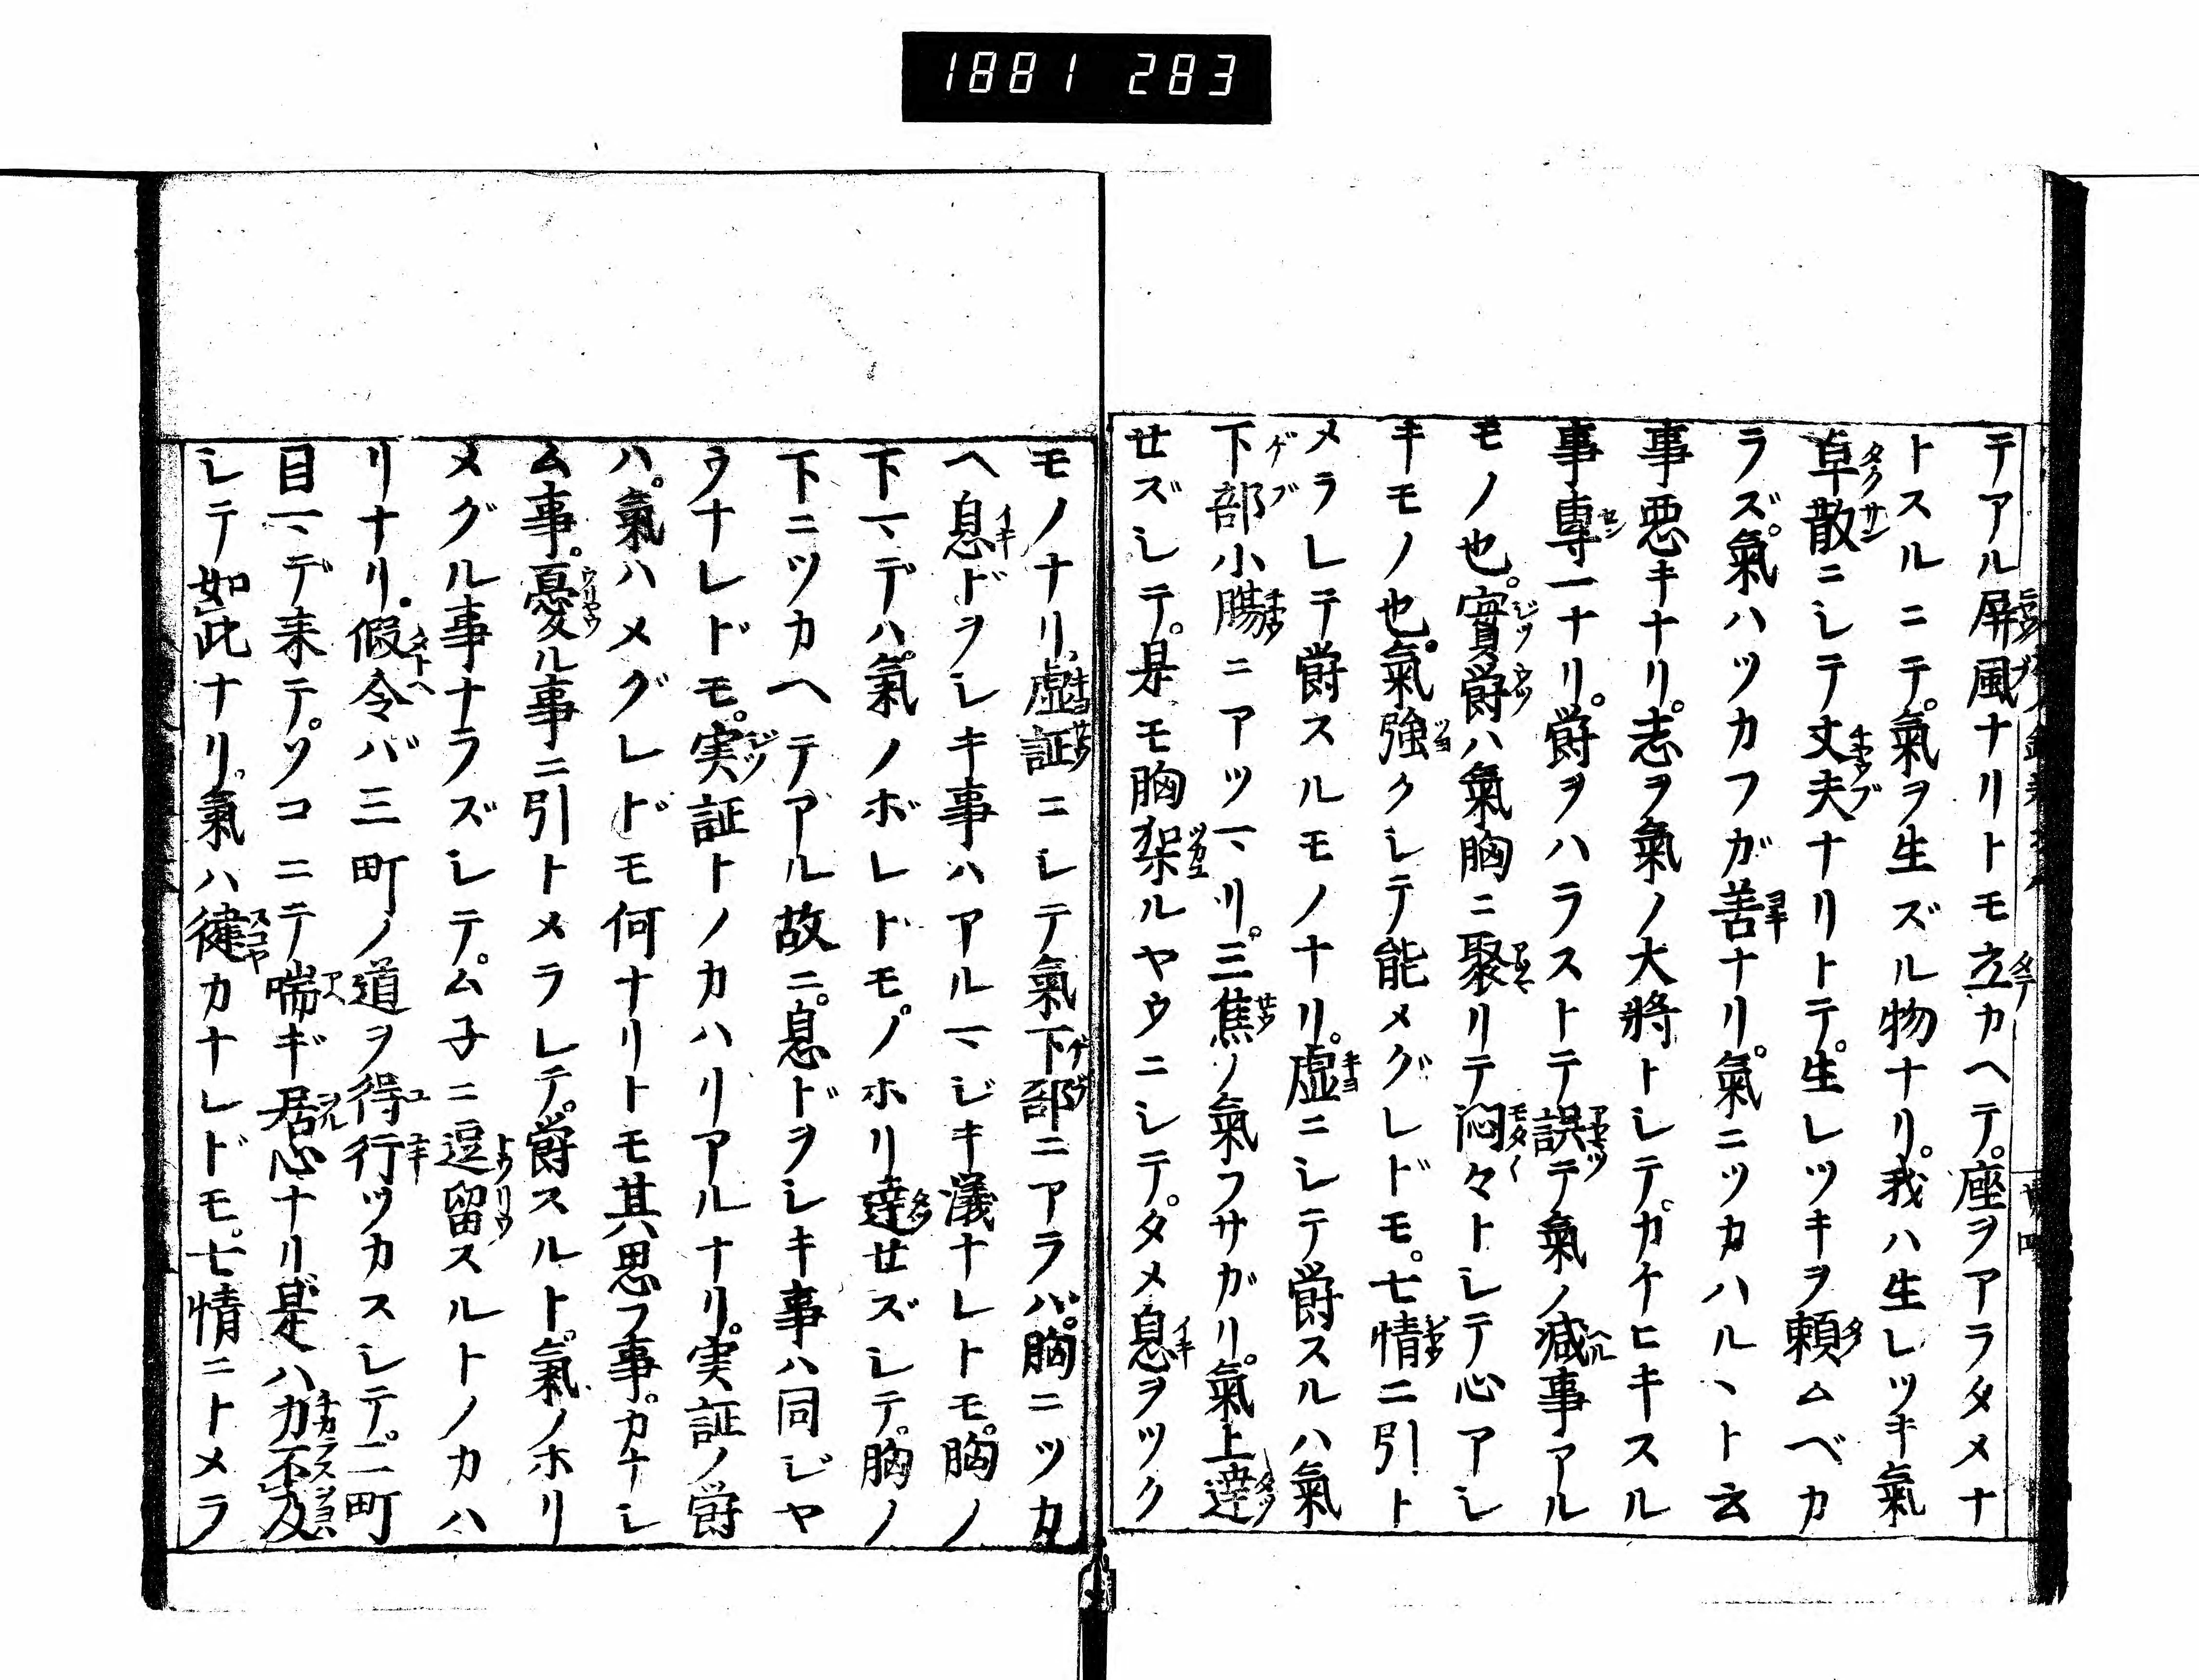 1881 283
テアル屏風ナリトモ立カヘテ。座ヲアラタメナ
トスルニテ。氣ヲ生ズル物ナリ。我ハ生レツキ氣
草散ニシテ丈夫ナリトテ。生レツキヲ頼ムベカ
ラズ。氣ハツカフガ善ナリ。氣ニツカハルヽト云
事悪キナリ。志ヲ氣ノ大將トシテ。カケヒキスル
事専一ナリ。欝ヲハラストテ誤テ氣ノ减事アル
モノ也。實欝ハ氣胸ニ聚リテ悶々トシテ心アシ
キモノ也。氣強クシテ能メグレドモ。七情ニ引ト
メラレテ欝スルモノナリ。虚ニシテ欝スルハ氣
下部小腸ニアツマリ。三焦ノ氣フサガリ。氣上達
せズシテ。是モ胸架ルヤウニシテ。タメ息ヲツク
モノナリ。虚証ニシテ氣下部ニアラバ。胸ニツカ
ヘ息ドヲシキ事ハアルマジキ儀ナレトモ。胸ノ
下マデハ。氣ノボレトモ。ノホリ達せズシテ。胸ノ
下ニツカヘテアル故ニ。息ドヲシキ事ハ同ジヤ
ウナレドモ。実証トノカハリアルナリ。実証ノ欝
ハ。氣ハメグレドモ何ナリトモ其思フ事。カナシ
ム事。憂ル事ニ引トメラレテ。欝スルト。氣ノホリ
メグル事ナラズシテ。ム子ニ逗留スルトノカハ
リナリ。假令バ三町ノ道ヲ得行ツカスシテ。二町
目マデ来テ。ソコニテ喘ギ居心ナリ是ハ力不及
シテ如此ナリ。氣ハ健カナレドモ。七情ニトメラ